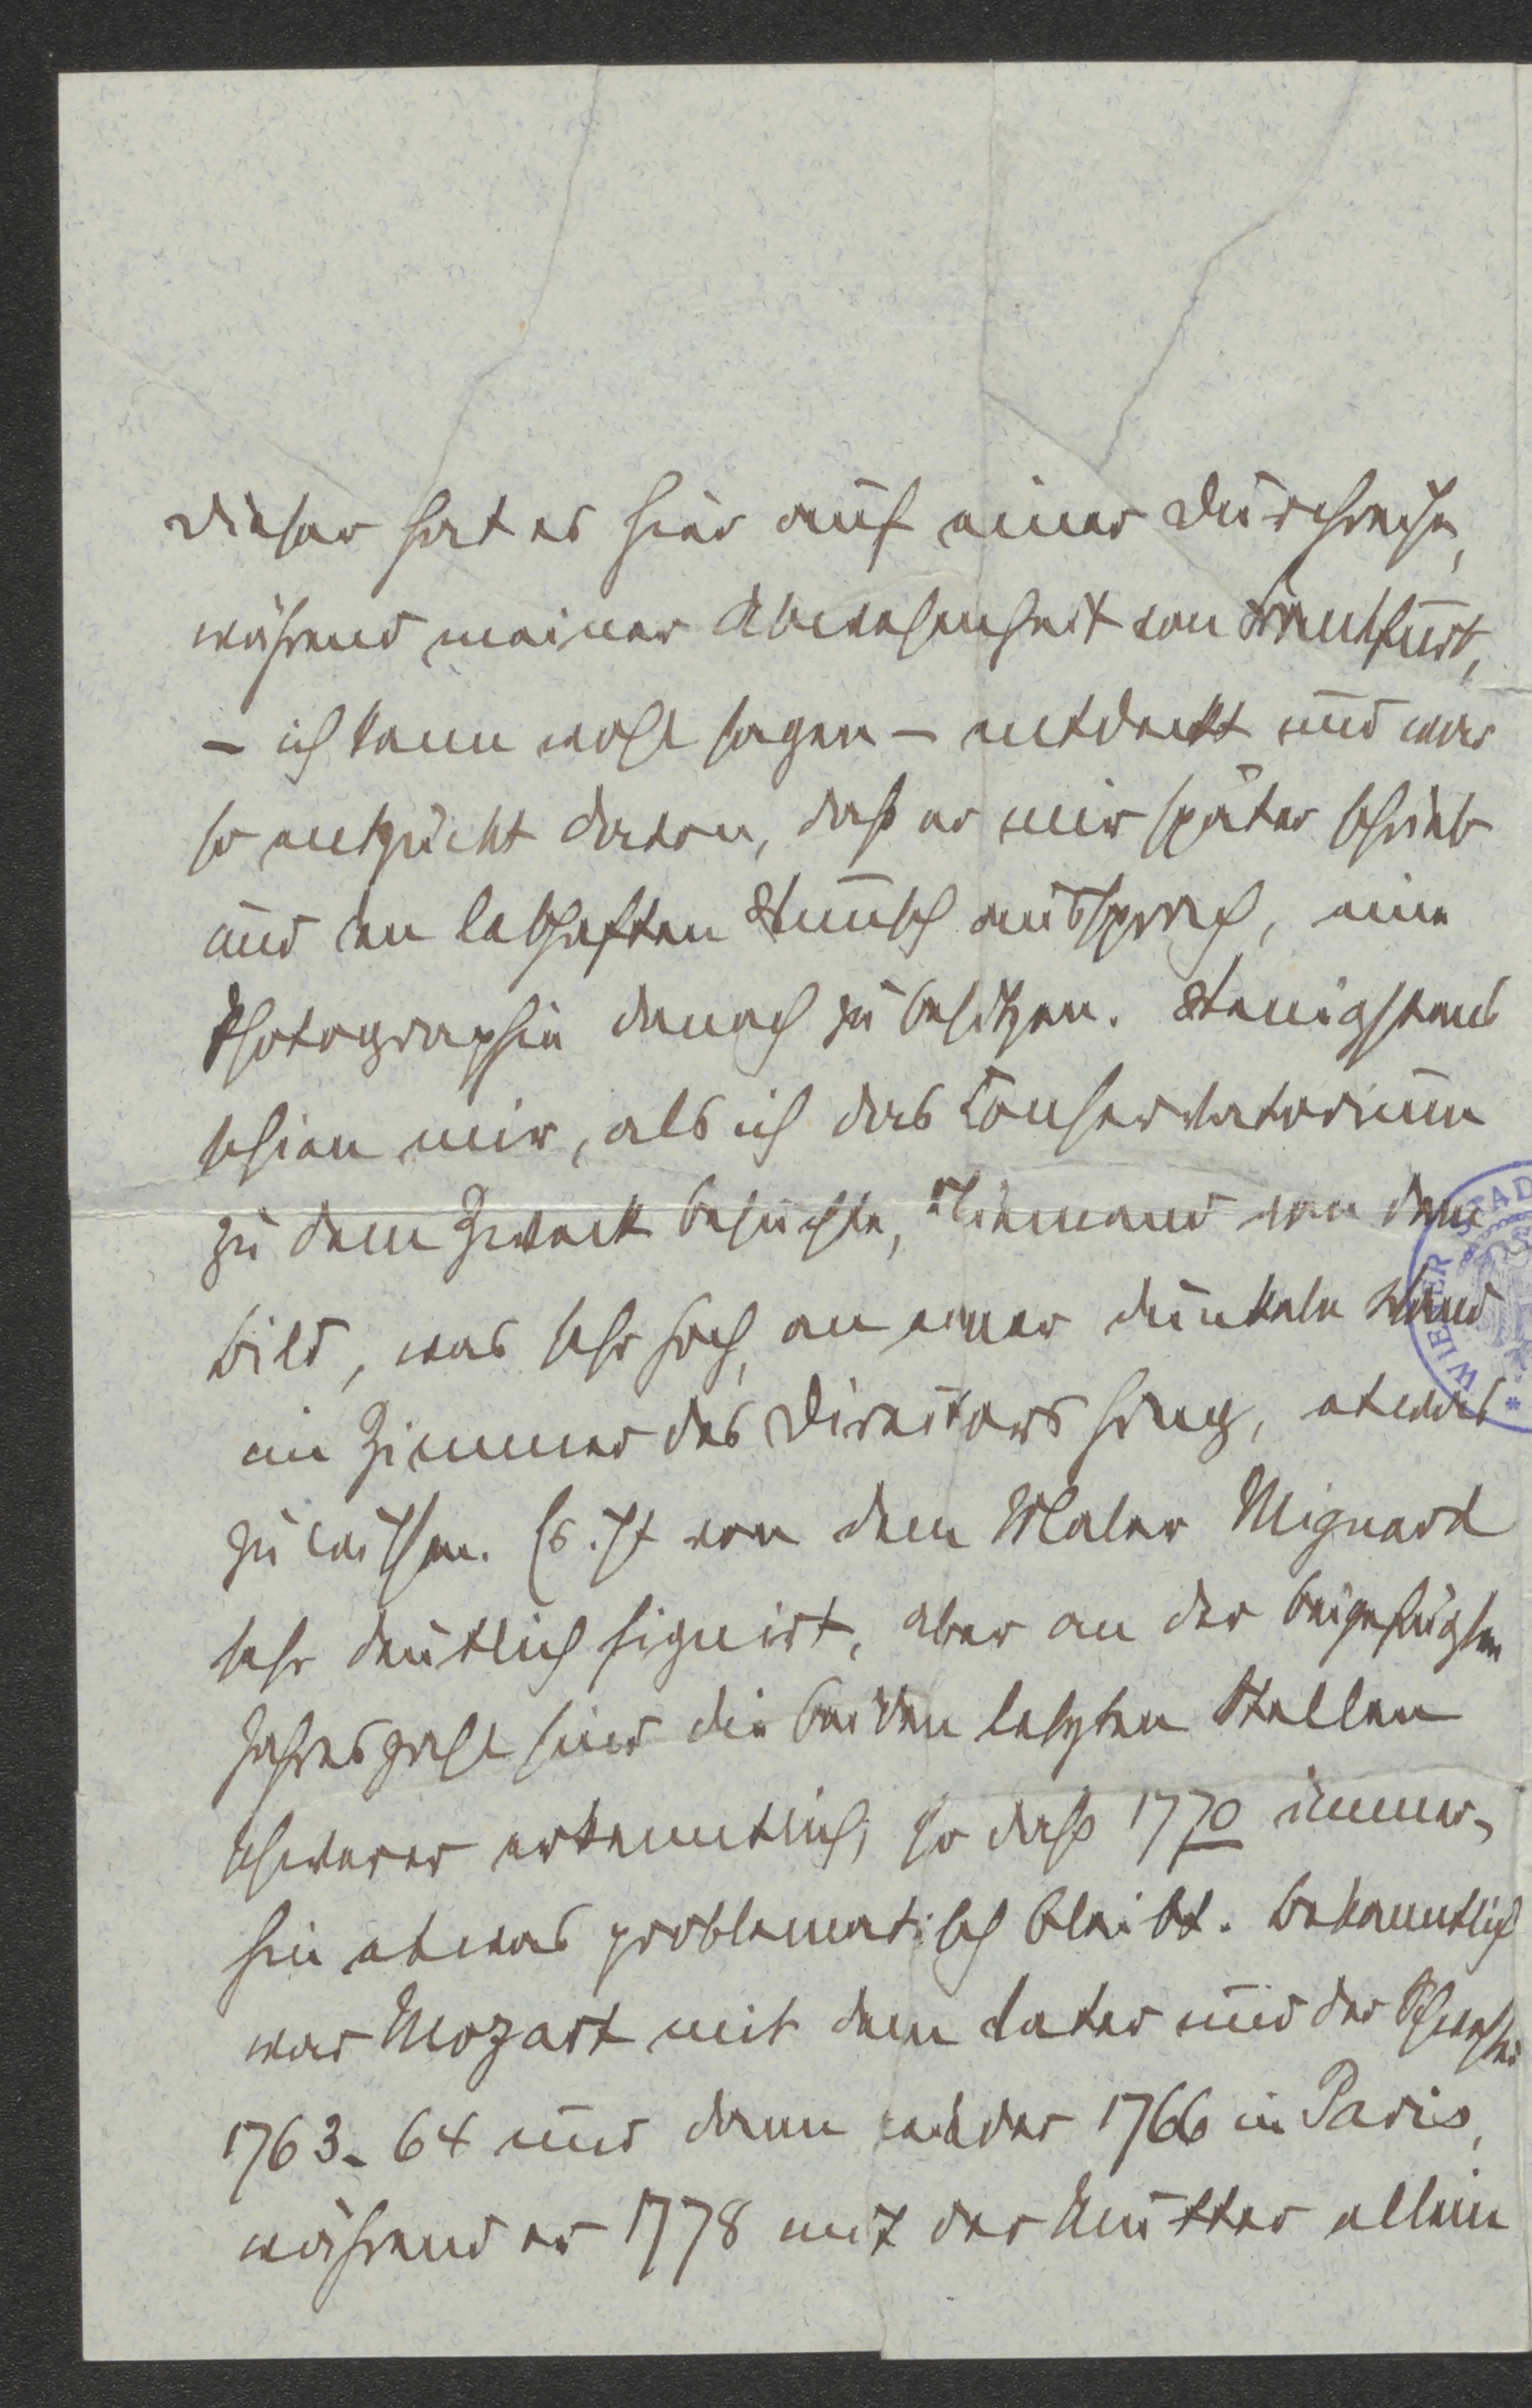 Dieser hat es hier auf einer Durchreise,
während meiner Abwesenheit von Frankfurt,
– ich kann wohl sagen – entdeckt und war
so entzückt davon, daß er mir später schrieb
und den lebhaften Wunsch aussprach, eine
Photographie danach zu besitzen. Wenigstens
schien mir, als ich das Conservatorium
zu dem Zweck besuchte, Niemand von dem
Bild, was sehr hoch, an einer dunkeln Wand
im Zimmer des Directors hing, etwas
zu wissen. Es ist von dem Maler Mignard
sehr deutlich signirt, aber an der beigefügten
Jahreszahl sind die beiden letzten Stellen
schwerer erkenntlich; so daß 1770 immer-
hin etwas problematisch bleibt. Bekanntlich
war Mozart mit dem Vater und der Schwester
1763-64 und dann wieder 1766 in Paris,
während er 1778 mit der Mutter allein
WIENER STAD